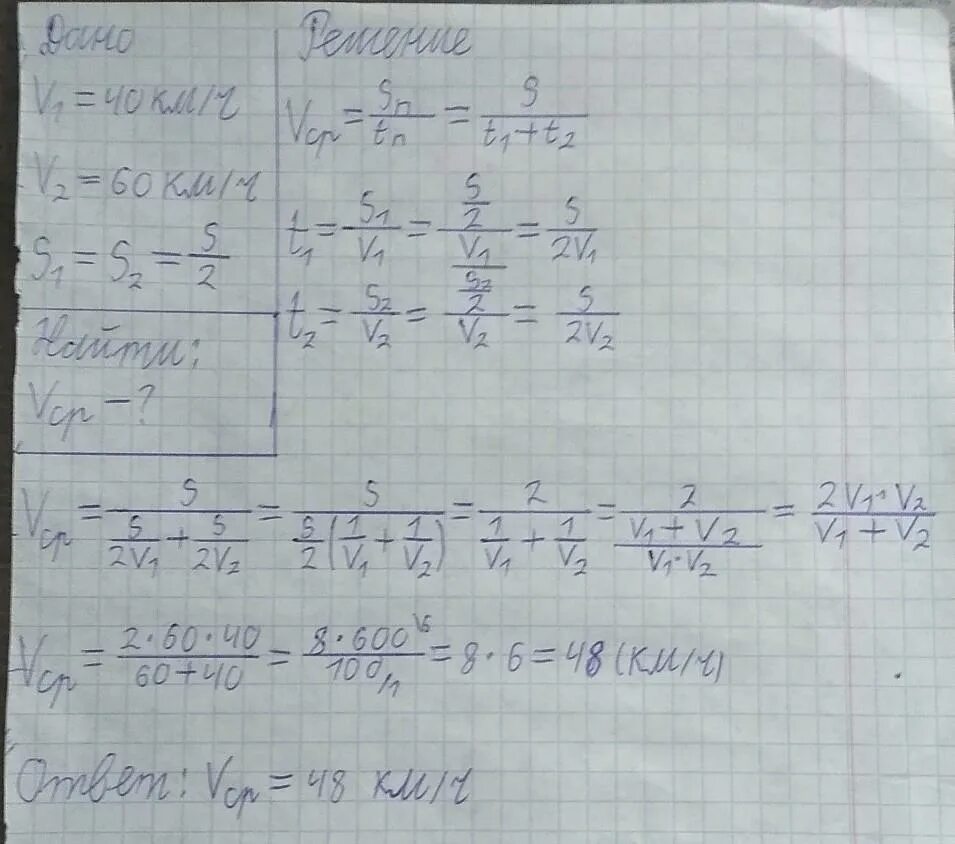 Дано
V₁ = 40 км/ч
V₂ = 60 км/ч
S₁ = S₂ = S/2
Найти:
Vср – ?
Решение
Vср = Sп/tп = S/(t₁ + t₂)
t₁ = S₁/V₁ = (S/2)/V₁ = S/2V₁
t₂ = S₂/V₂ = (S₂/2)/V₂ = S/2V₂
Vср = S/(S/2V₁ + S/2V₂) = S/(S/2(1/V₁ + 1/V₂)) = 2/(1/V₁ + 1/V₂) = 2/((V₁ + V₂)/(V₁·V₂)) = 2V₁·V₂/(V₁ + V₂)
Vср = 2·60·40/(60+40) = 8·600⁶/100₁ = 8·6 = 48 (км/ч)
Ответ: Vср = 48 км/ч